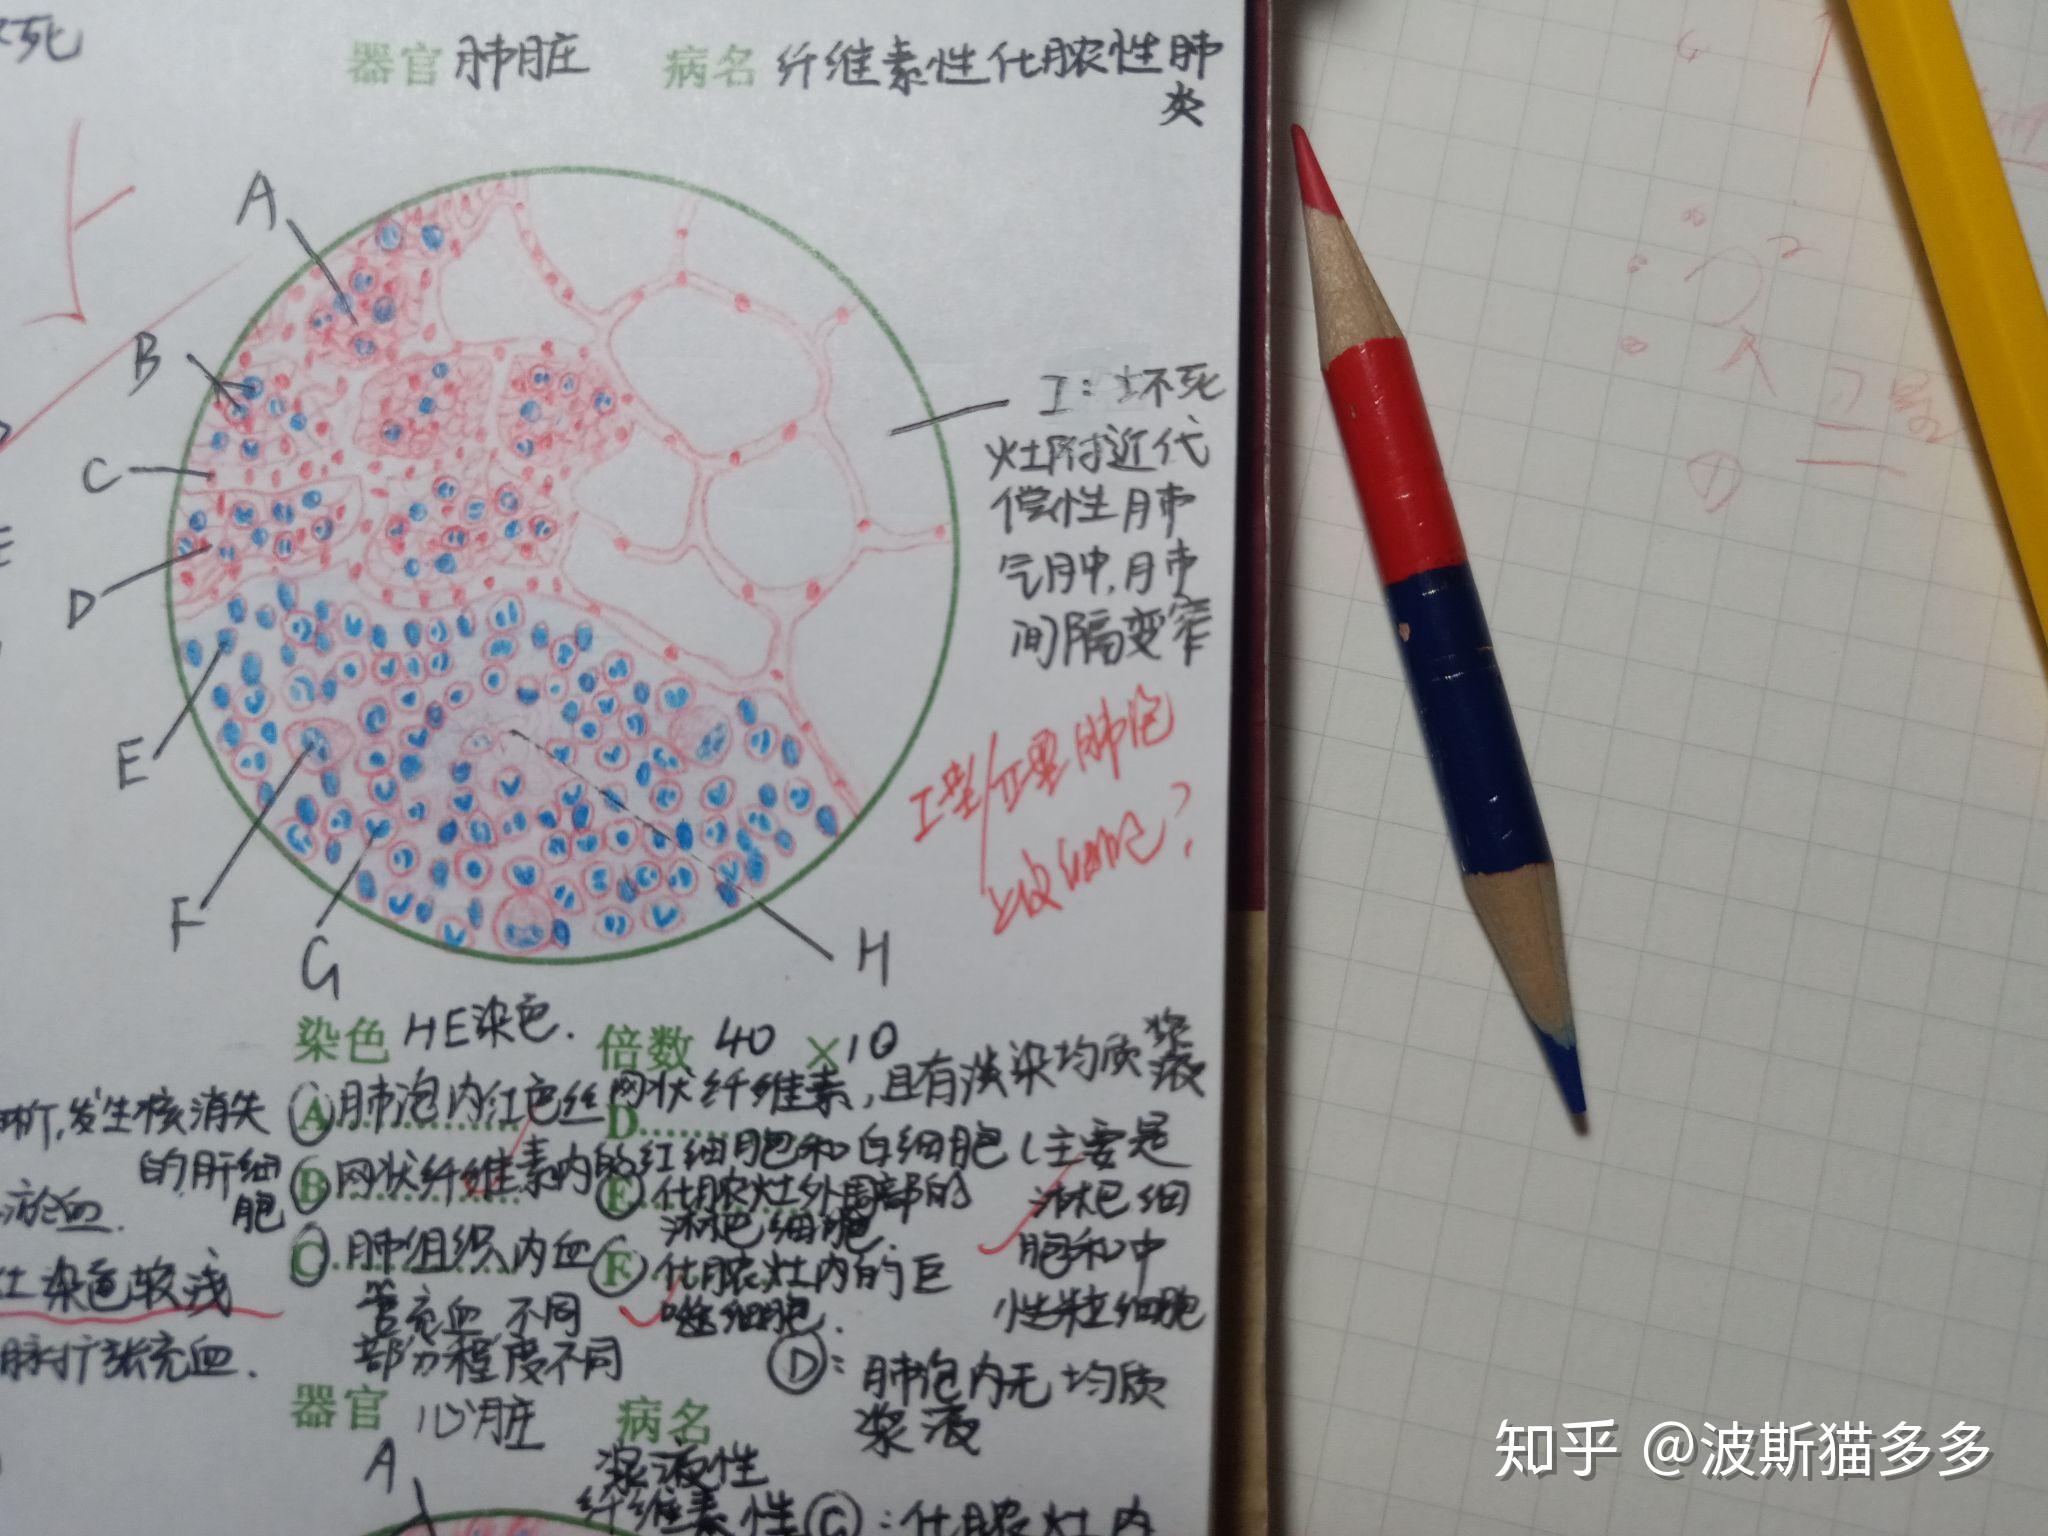 死
器官 肺脏 病名 纤维素性化脓性肺
炎
A
B
C
D
E
F
G
H
I：坏死
灶附近代
偿性肺
气肿，肺
间隔变窄
I型/II型肺泡
上皮细胞？
染色 HE染色. 倍数 40 ×10
Ⓐ肺泡内红色丝网状纤维素，且有淡染均质浆液
D
Ⓑ网状纤维素内的红细胞和白细胞（主要是
淋巴细
胞和中
性粒细胞
Ⓒ肺组织内血
管充血 不同
部分程度不同
Ⓔ化脓灶外围部的
淋巴细胞.
Ⓕ化脓灶内的巨
噬细胞.
Ⓓ：肺泡内无均质
浆液
发生核消失
的肝细
胞
淤血.
染色较浅
脉扩张充血.
器官 心脏 病名
浆液性
纤维素性
A
Ⓖ：化脓灶内
知乎 @波斯猫多多